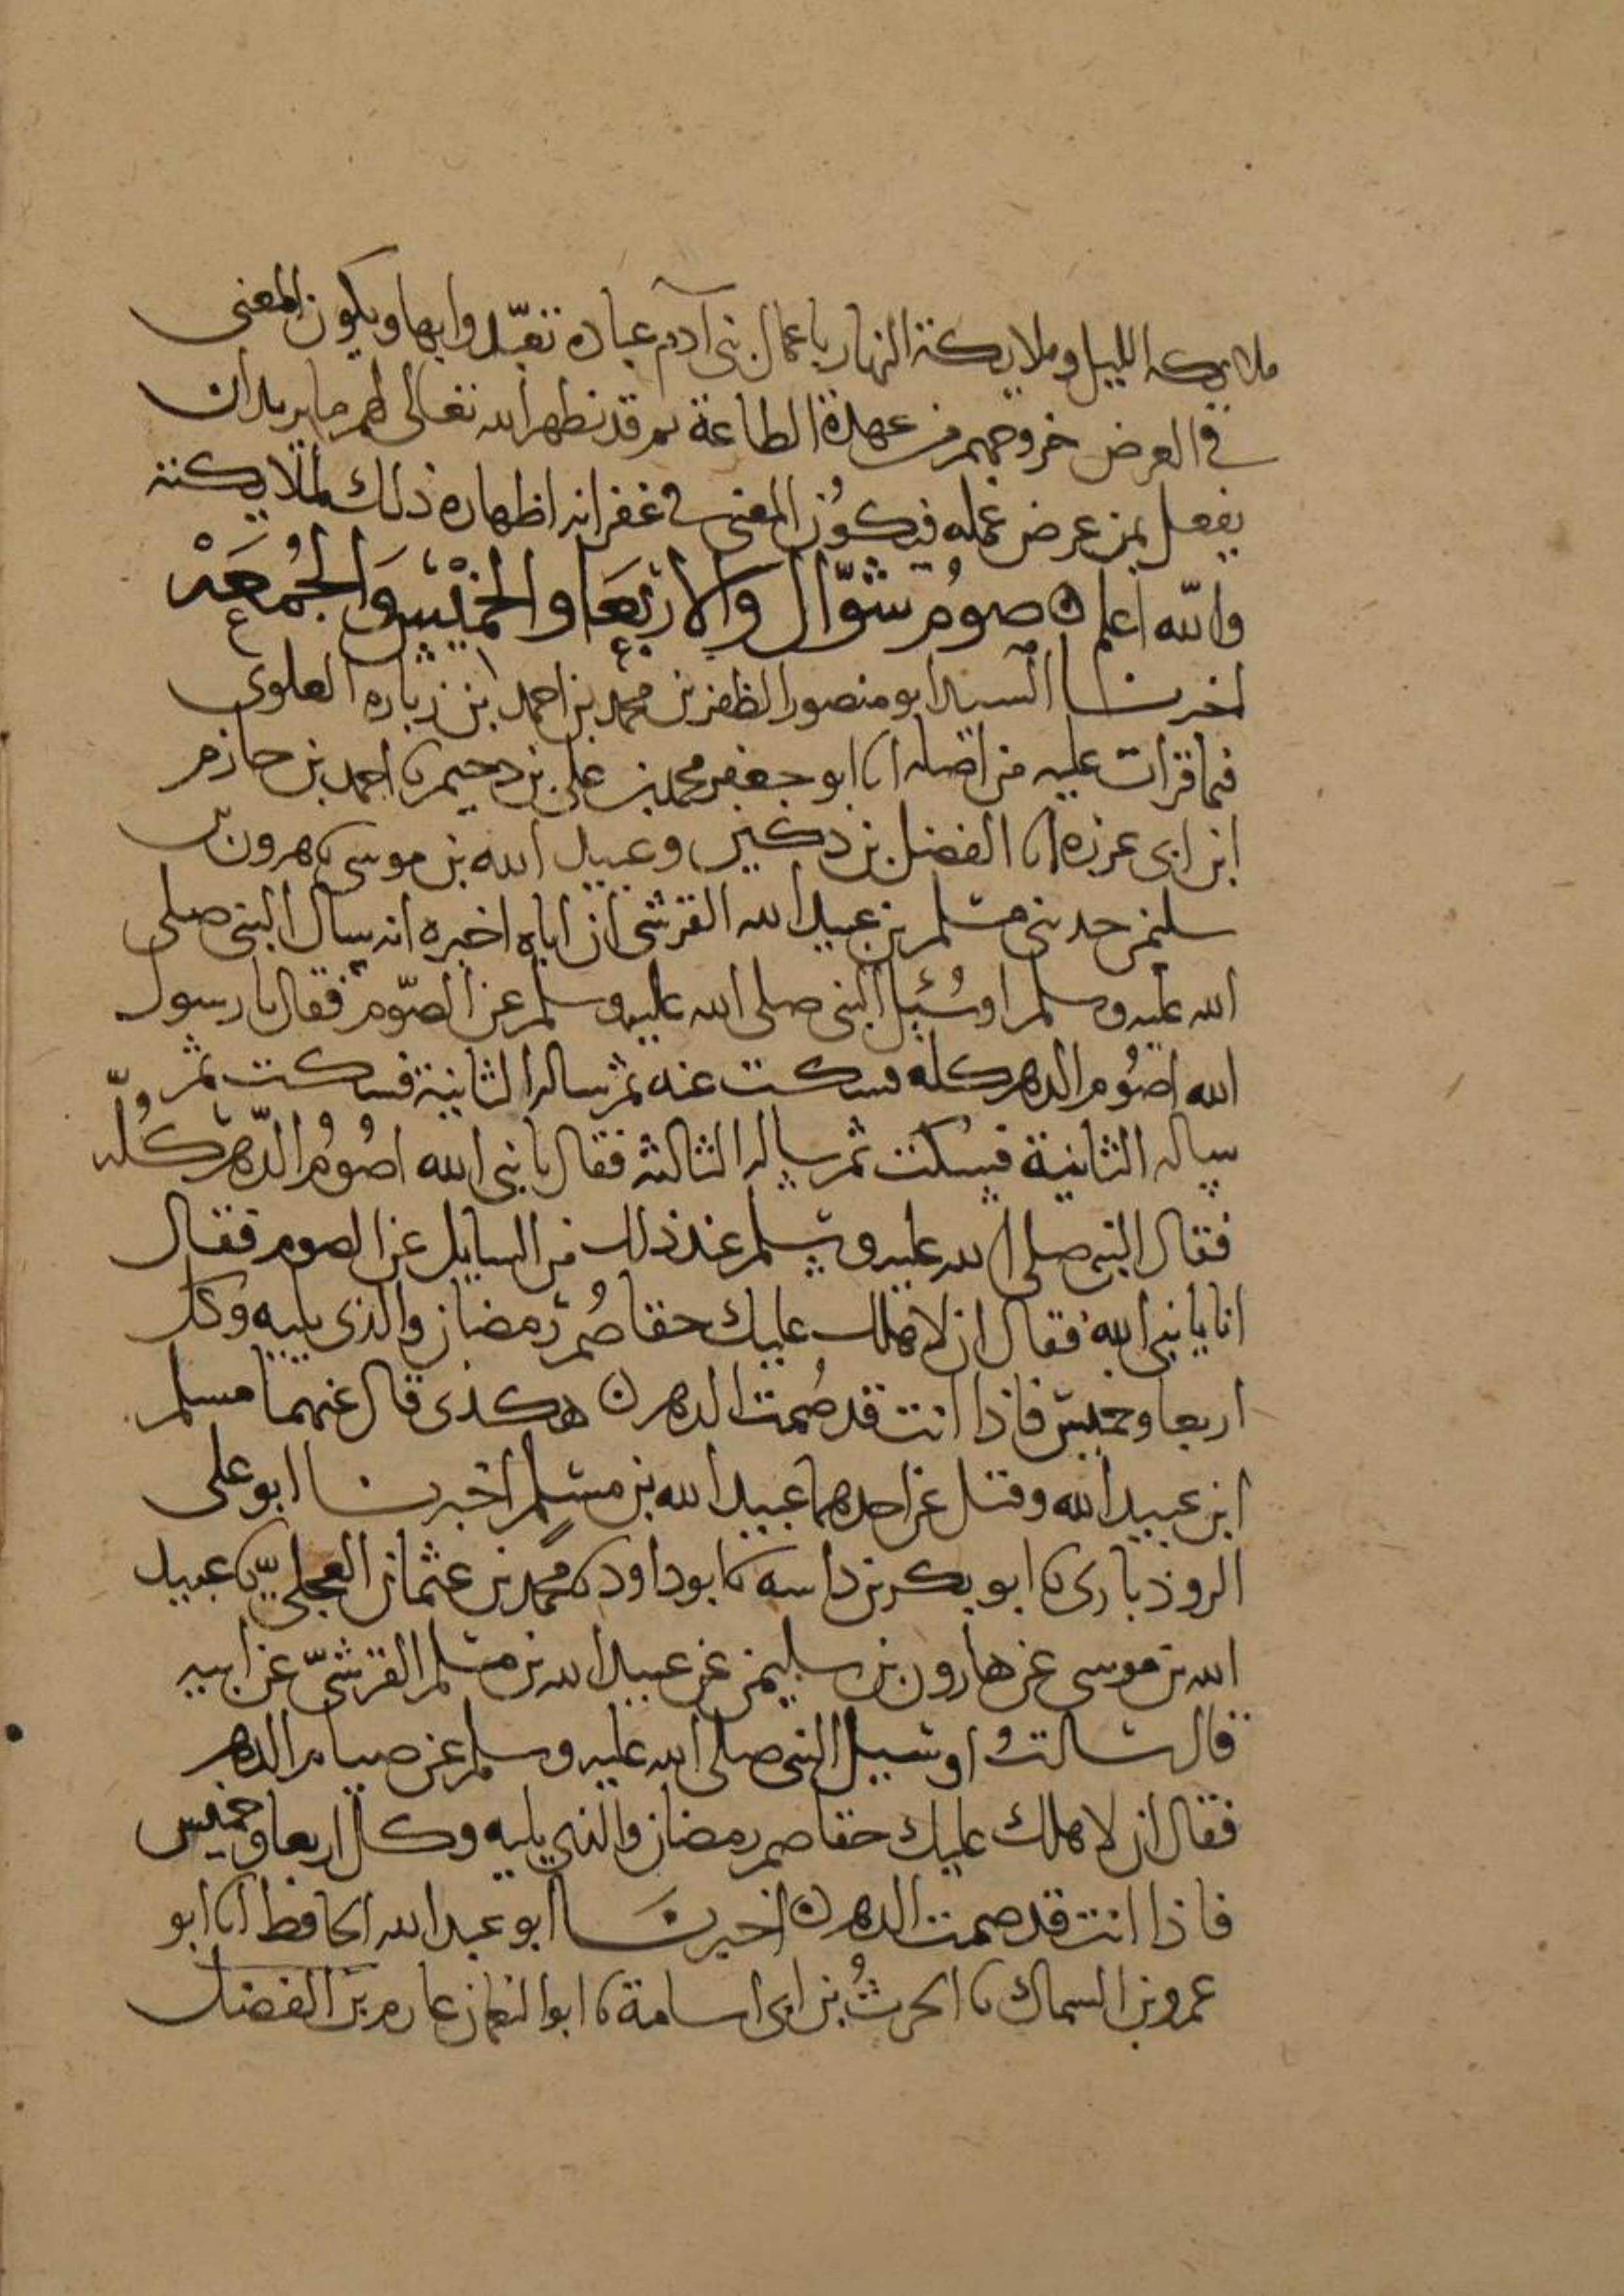 ملايكه الليل وملايكة النهار باعمال بنى آدم عبادة تعبّدوا بها ويكون المعنى
في العرض خروجهم من عهدة الطاعة ثم قد يظهر الله تعالى لهم ما يريد ان
يفعل بمن عرض عمله فيكُون المعنى في غفرانه اظهاره ذلك لملايكته
والله اعلم ه صومُ شوّال والاربَعَا والخميْس وَالجُمُعَهْ
اخبرنا السيد ابو منصور الظفر بن محمد بن احمد ابن زباره العلوى
فيما قرات عليه من اصله انا ابو جعفر محمد بن على بن دحيم نا احمد بن حازم
ابن ابى غرزه انا الفضل بن دكين وعبيد الله بن موسى نا هرون بن
سليمن حدثنى مسلم بن عبيد الله القرشى ان اباه اخبره انه سال النبى صلى
الله عليه وسلم او سُئل النبى صلى الله عليه وسلم عن الصّوم فقال يا رسول
الله اصُوم الدهر كله فسكت عنه ثم ساله الثانية فسكت ثم
ساله الثانية فسكت ثم ساله الثالثة فقال يا نبى الله اصُومُ الدّهر كُلّه
فقال النبى صلى الله عليه وسلم عند ذلك من السايل عن الصوم فقال
انا يا نبى الله فقال ان لاهلك عليك حقا صُم رمضان والذى يليه وكل
اربعا وخميس فاذا انت قد صُمت الدهر ه هكذى قال عنهما مسلم
ابن عبيد الله وقيل عن احدهما عبيد الله بن مسلم اخبرنا ابو على
الروذبارى نا ابو بكر بن داسه نا ابو داود نا محمد بن عثمان العجلىّ نا عبيد
الله بن موسى عن هارون بن سليمن عن عبيد الله بن مسلم القرشىّ عن ابيه
قال سالتُ او سيل النبى صلى الله عليه وسلم عن صيام الدهر
فقال ان لاهلك عليك حقا صم رمضان والذي يليه وكل اربعا وخميس
فاذا انت قد صمت الدهر ه اخبرنَا ابو عبد الله الحافظ انا ابو
عمرو بن السماك نا الحرثُ بن ابى اسامة نا ابو النعمان عارم بن الفضل